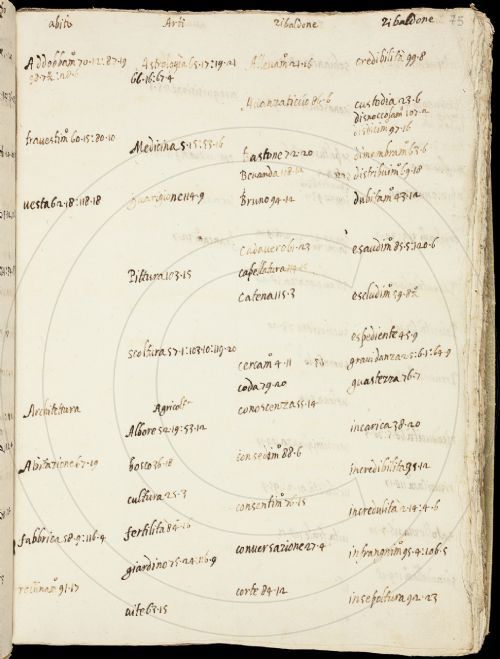 abito
Addobbam.º 70·12:87·19
travestim.º 60·15:80·10
vesta 62·18:118·18
Architettura
Abitazione 67·19
fabbrica 58·9:116·4
91·17
Arti
Astrologia 65·17:19·21
66·16:67·4
Medicina 5·15:53·16
guarigione 114·9
Pittura 103·15
scoltura 57·1:103·10:119·20
Agricolt.ª
Albore 52·19:53·12
bosco 36·18
cultura 25·3
fertilità 84·16
giardino 75·24:116·9
vite 63·15
zibaldone
Allevam.º 21·16
Avanzaticcio 86·6
bastone 72·20
Bevanda 118·12
Bruno 94·12
Cadavero 61·23
capellatura
catena 115·3
cercam.º 4·11
coda 79·20
conoscenza 55·14
consedim.º 88·6
consentim.º 76·15
conversazione 27·4
corte 84·12
zibaldone 75
credibilità 99·8
custodia 23·6
disnoccojam.º 107·2
97·16
dimembram.º 63·6
distribuim.º 69·18
dubitam.º 43·12
esaudim.º 85·5:120·6
escludim.º 59·8
espediente 45·9
gravidanza 25·6:64·9
guastezza 76·7
incarica 38·20
incredibilità 95·12
incredulità 2·14:4·6
infrangnim.º 95·4:106·5
insepoltura 92·23